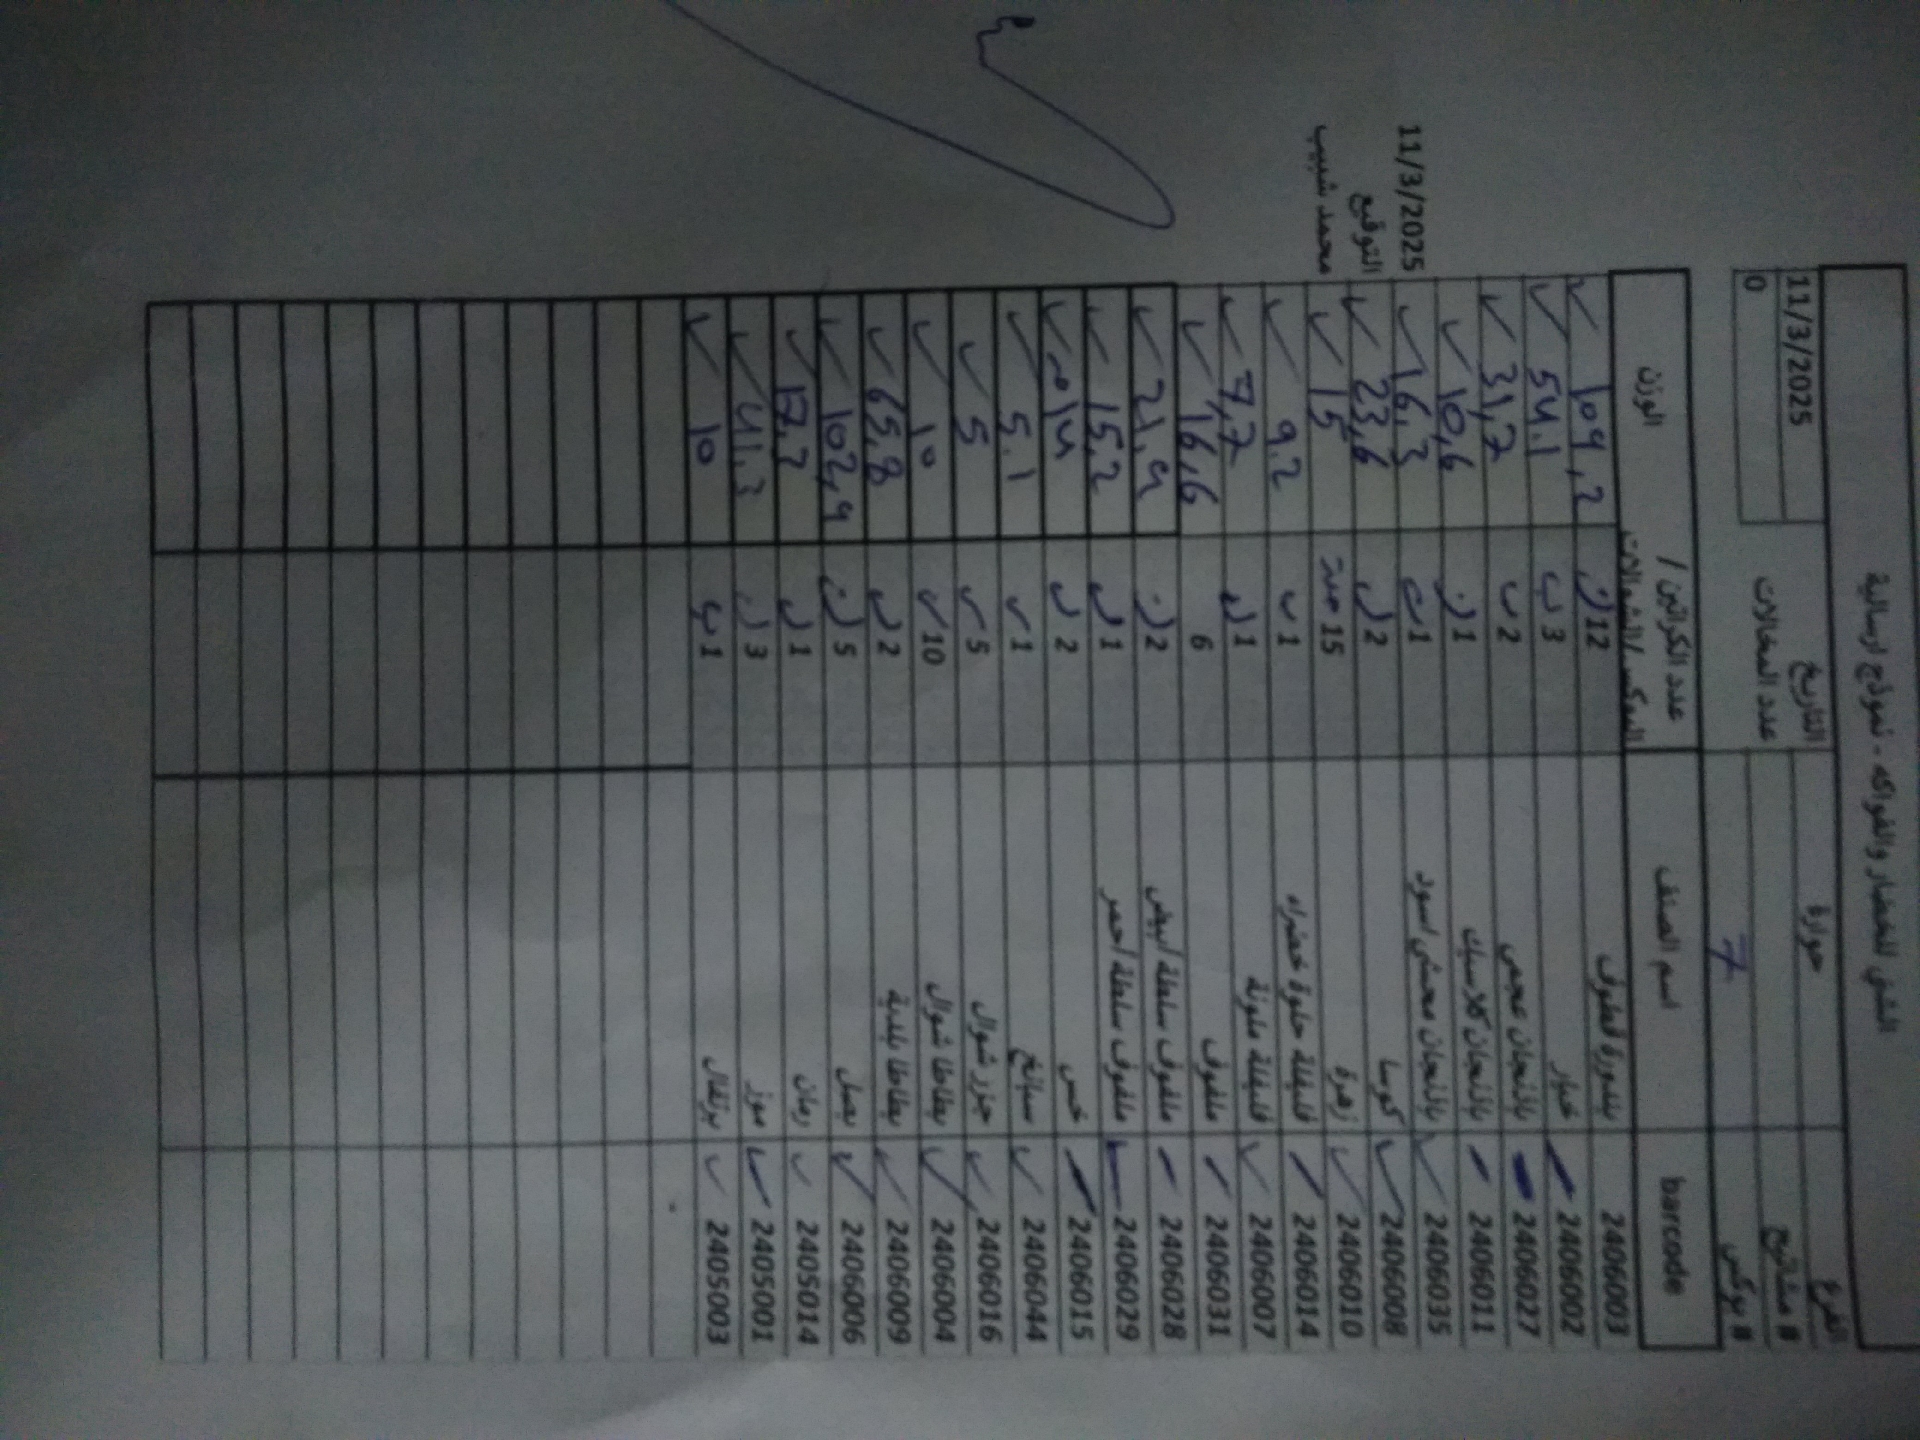 الشني للخضار والفواكه - نموذج ارسالية
الفرع حوارة التاريخ 11/3/2025
# مشاتيح عدد المخالات 0
# بوكس 7
barcode اسم الصنف عدد الكراتين / البوكس / الشوالات الوزن
2406003 بندورة قطوف 12 109,2
2406002 خيار 3 54.1
2406027 باذنجان عجمي 2 31,7
2406011 باذنجان كلاسيك 1 10,6
2406035 باذنجان محشي اسود 1 16,3
2406008 كوسا 2 23,6
2406010 زهرة 15 15
2406014 فليفلة حلوة خضراء 1 9.2
2406007 فليفلة ملونة 1 7,7
2406031 ملفوف 6 16,6
2406028 ملفوف سلطة ابيض 2 21,9
2406029 ملفوف سلطة احمر 1 15,2
2406015 خس 2
2406044 سبانخ 1 5.1
2406016 جزر شوال 5 5
2406004 بطاطا شوال 10 10
2406009 بطاطا بلدية 2 65,8
2406006 بصل 5 102,9
2405014 رمان 1
2405001 موز 3 41,3
2405003 برتقال 1 10
11/3/2025
التوقيع
محمد شبيب